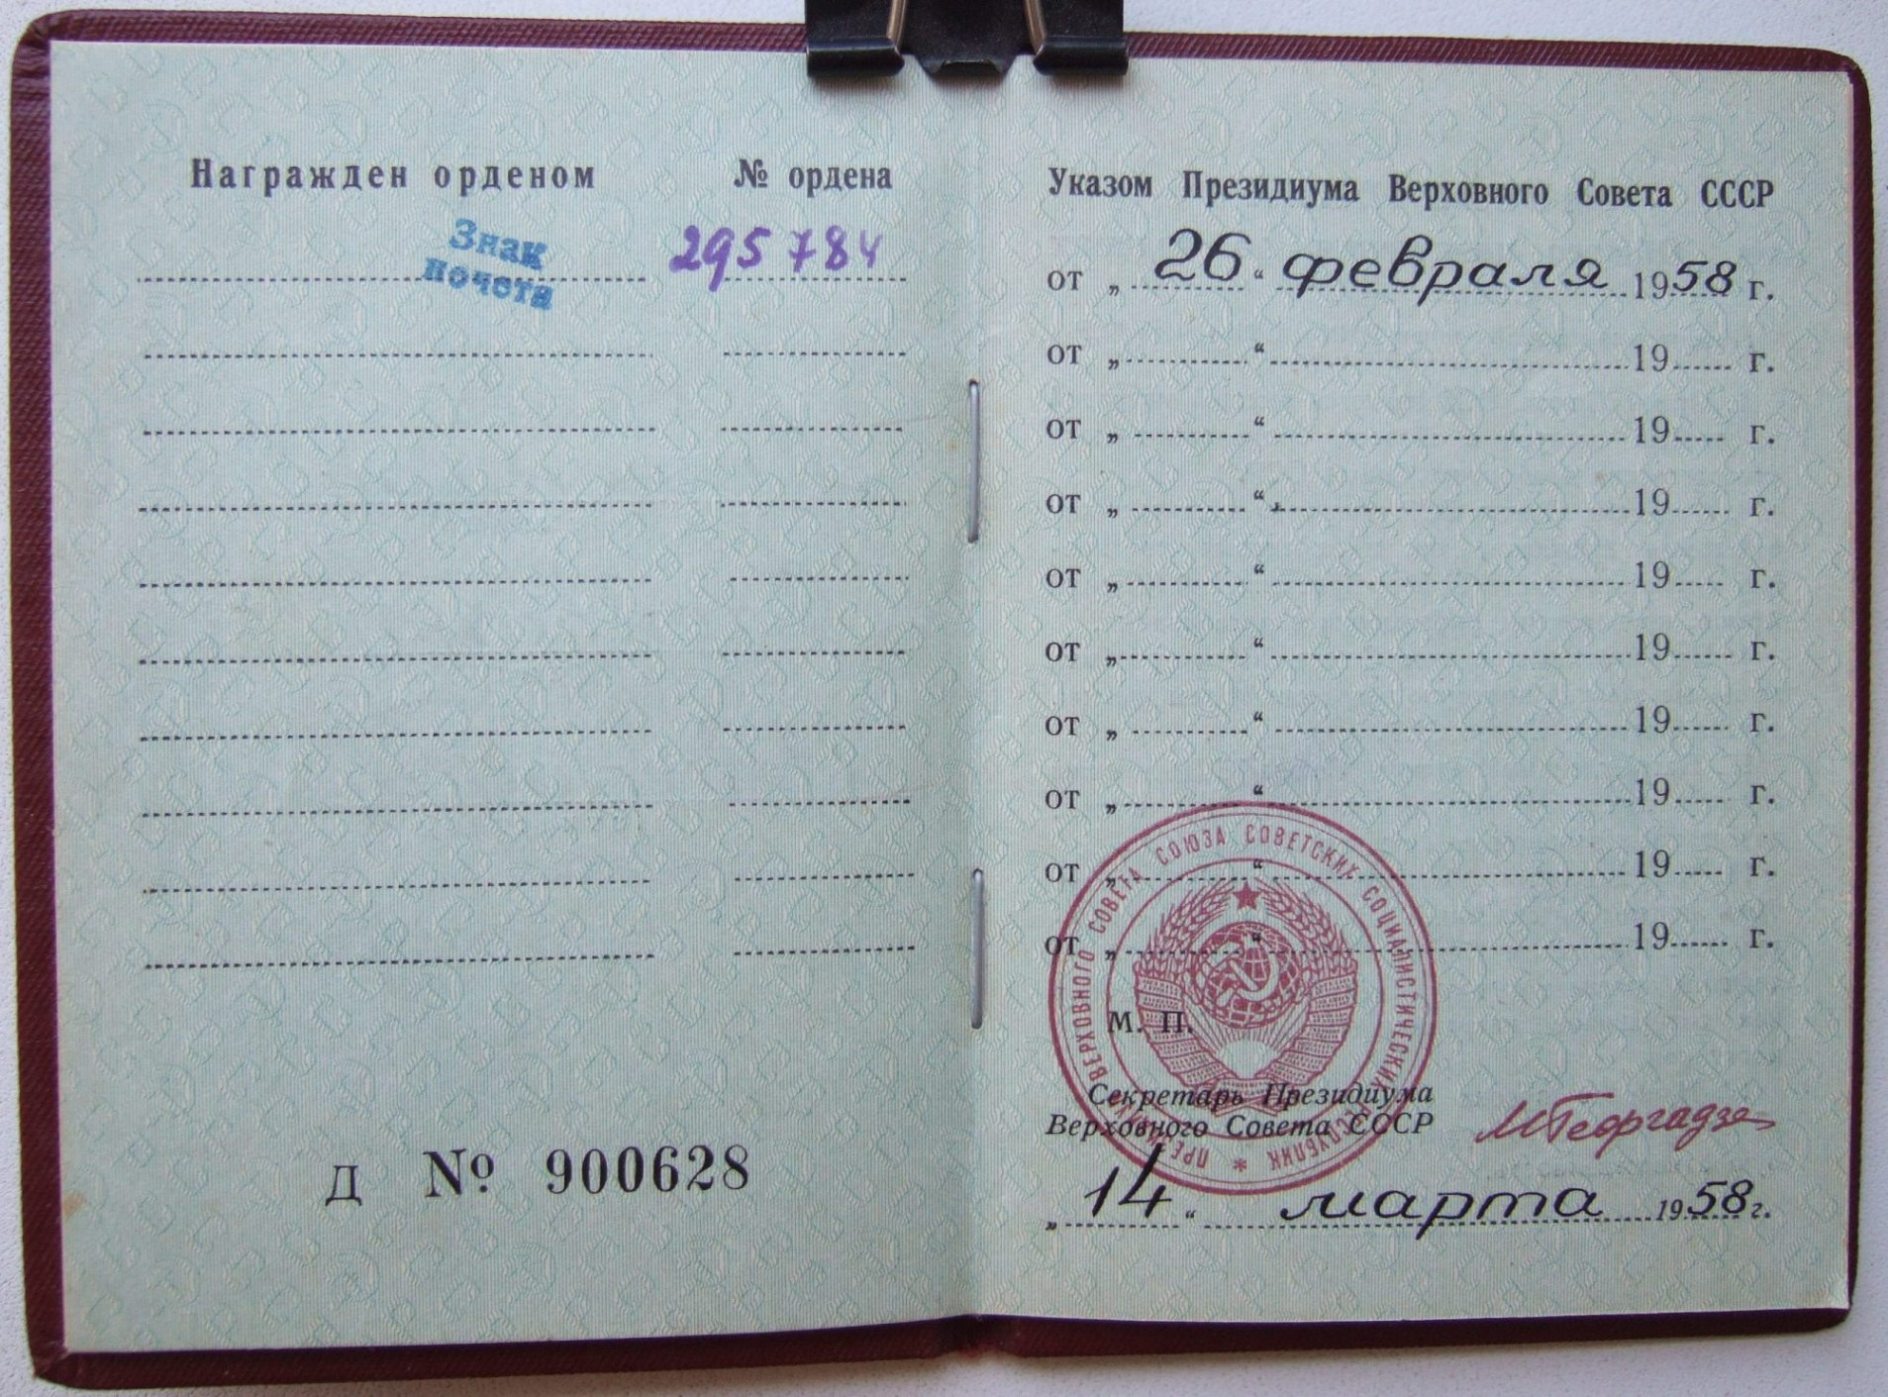 Награжден орденом № ордена
Знак
почета
295784
Д № 900628
Указом Президиума Верховного Совета СССР
от „ 26 “ февраля 1958 г.
от „ “ 19 г.
от „ “ 19 г.
от „ “ 19 г.
от „ “ 19 г.
от „ “ 19 г.
от „ “ 19 г.
от „ “ 19 г.
от „ “ 19 г.
от „ “ 19 г.
ПРЕЗИДИУМ ВЕРХОВНОГО СОВЕТА СОЮЗА СОВЕТСКИХ СОЦИАЛИСТИЧЕСКИХ РЕСПУБЛИК *
М. П.
Секретарь Президиума
Верховного Совета СССР
МГеоргадзе
„ 14 “ марта 1958 г.